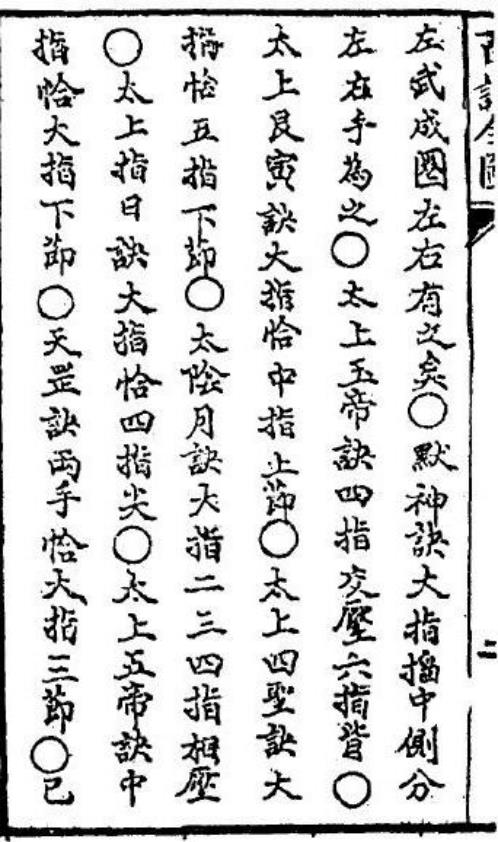 左武成圈左右有之矣〇默神訣大指搯中側分
左右手為之〇太上玉帝訣四指交壓六指背〇
太上艮寅訣大指恰中指上節〇太上四聖訣大
指恰五指下節〇太陰月訣大指二三四指相壓
〇太上指日訣大指恰四指尖〇太上五帝訣中
指恰大指下節〇天罡訣両手恰大指三節〇已
二